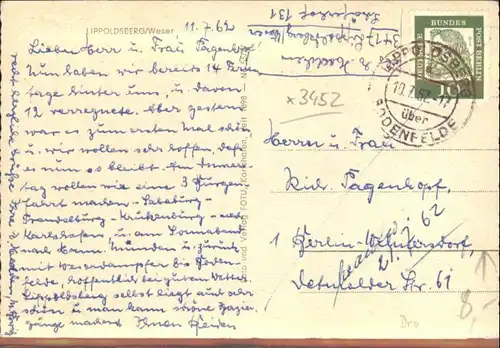 LIPPOLDSBERG/Weser
11.7.62
Lieber Herr u. Frau Tagenkopf!
Nun haben wir bereits 14 Ferien-
tage hinter uns, u. davon
12 verregnete. Aber gestern
war es zum ersten Mal schön
u. wir wollen sehr hoffen, daß
es nun so bleibt. Am Donners-
tag wollen wir eine 3 Burgen-
fahrt machen - Sababurg -
Trendelburg - Krukenburg - nach
Karlshafen u. am Sonnabend
nach Hann. Münden u. zurück
mit Weserdampfer bis Boden-
felde, hoffentlich bei gutem Wetter.
Lippoldsberg selbst liegt auch sehr
schön u. man kann schöne Spazier-
gänge machen. Ihnen beiden
recht herzliche Grüße
Foto und Verlag FOTU
3417 Lippoldsberg/Weser
131
DEUTSCHE BUNDESPOST BERLIN
10
LIPPOLDSBERG
10.7.62-17
über
BODENFELDE
x3452
Herrn u. Frau
Rich. Tagenkopf,
1 Berlin-Wilmersdorf
Detmolder Str. 61
62
8,-